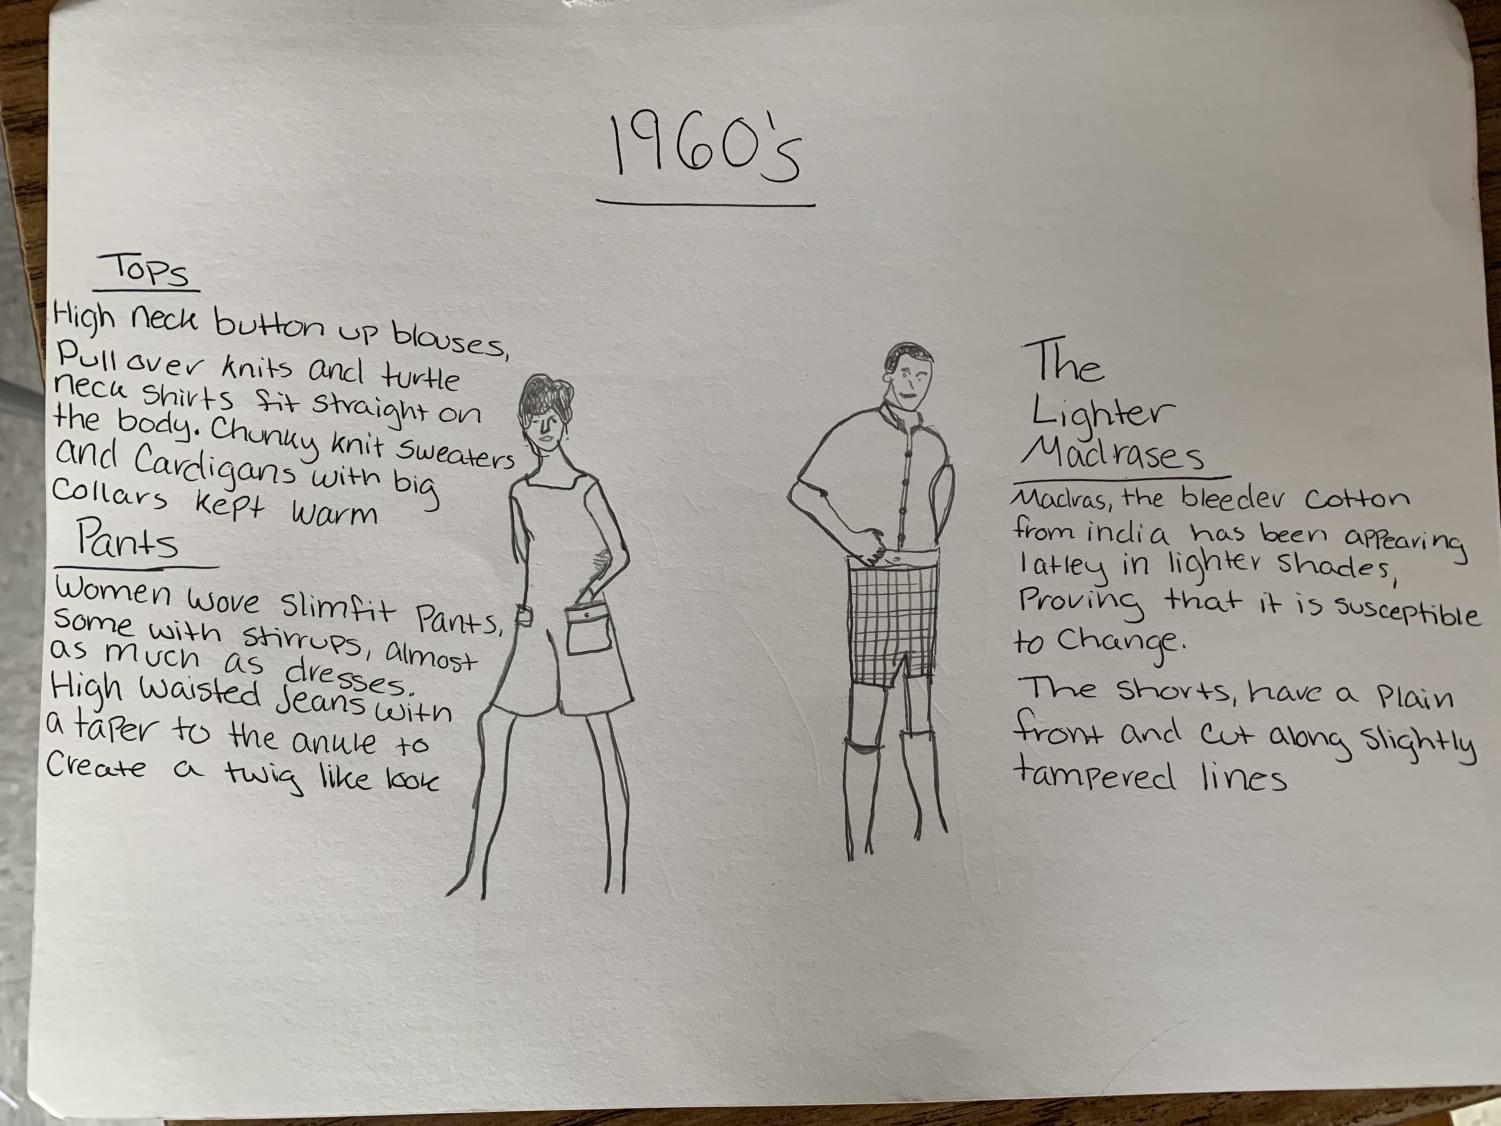 1960's
Tops
High neck button up blouses,
Pull over knits and turtle
neck shirts fit straight on
the body. Chunky knit sweaters
and Cardigans with big
Collars kept warm
Pants
Women wove slimfit Pants,
some with stirrups, almost
as much as dresses.
High waisted Jeans with
a taper to the ankle to
Create a twig like look
The
Lighter
Madrases
Madras, the bleeder cotton
from india has been appearing
latley in lighter shades,
Proving that it is susceptible
to Change.
The shorts, have a Plain
front and cut along slightly
tampered lines